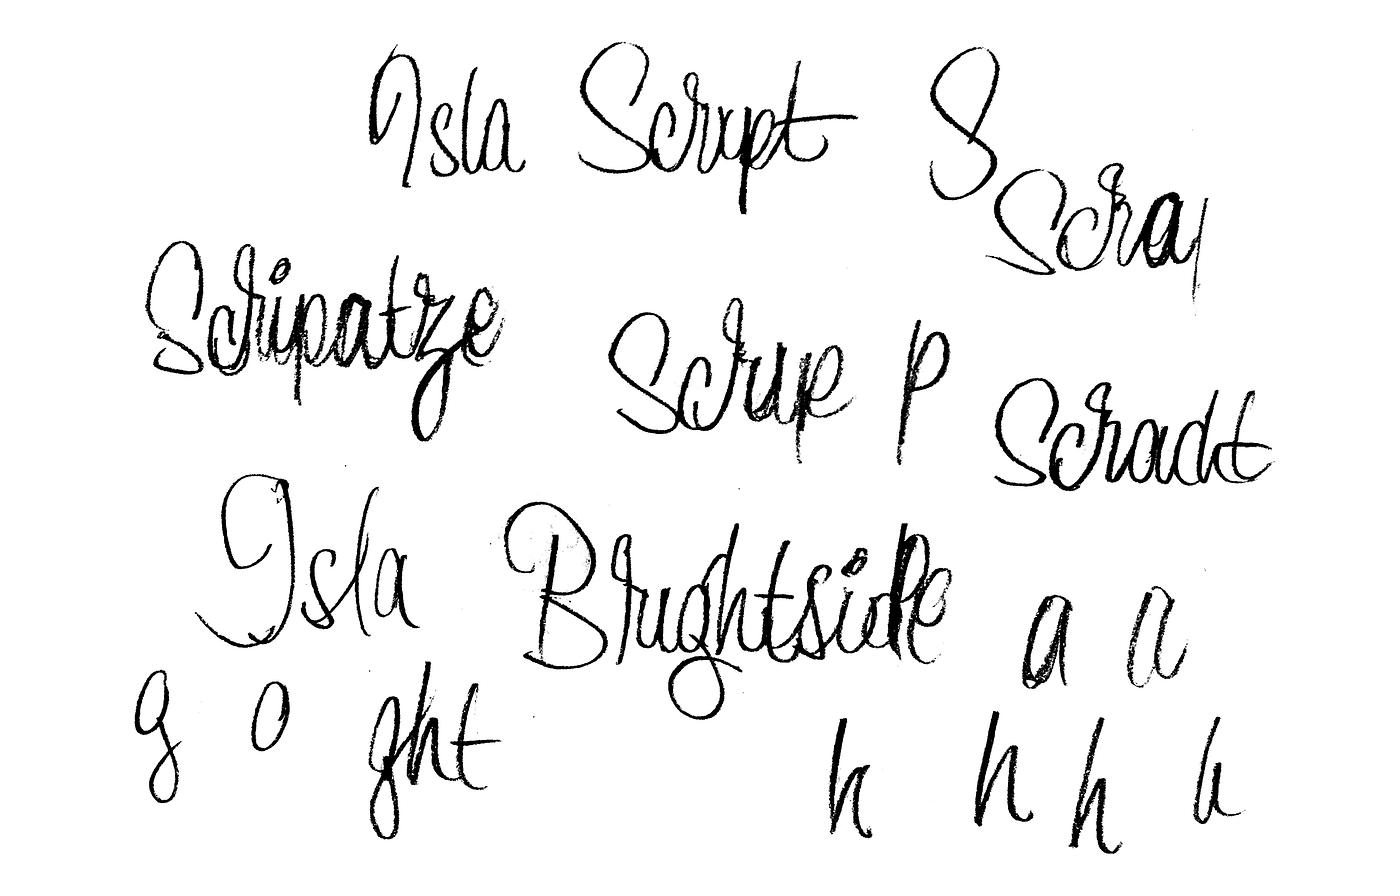 Isla Script S
Scra
Scripatze
Scripe p
Scradt
Isla Brightside a a
g o ght
h h h h